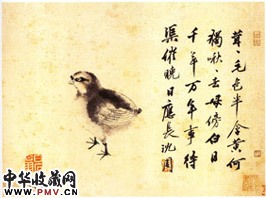 茸々毛色半含黃何
獨啾々去母傍白日
千年萬年事待
渠催曉日應長沈周
中华收藏网
www.PMV.CN